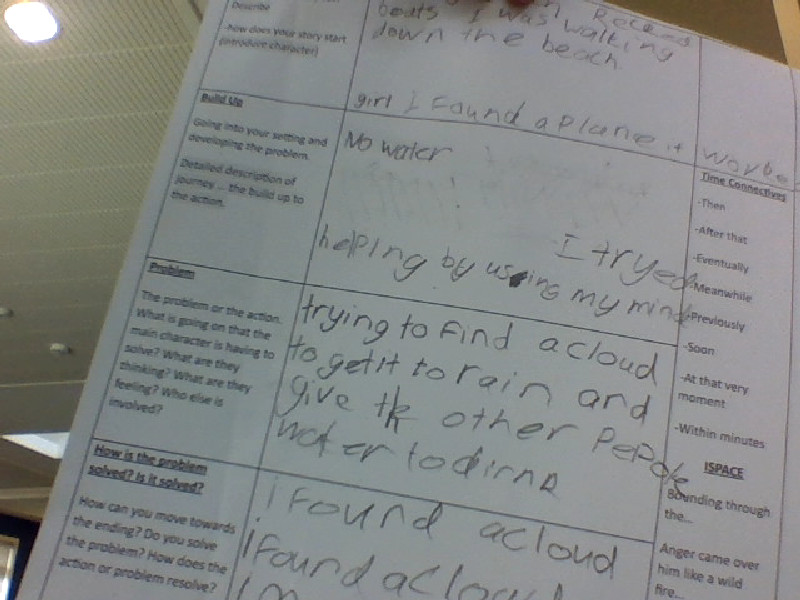 Describe
-How does your story start
(introduce character)
boats I was walking
down the beach
Build Up
Going into your setting and
developing the problem.
Detailed description of
journey ... the build up to
the action.
girl I Found a Plane it
No water
I tryed
helping by using my mind
Problem
The problem or the action.
What is going on that the
main character is having to
solve? What are they
thinking? What are they
feeling? Who else is
involved?
trying to Find a cloud
to get it to rain and
give the other PePole
water to dirnk
How is the problem
solved? Is it solved?
How can you move towards
the ending? Do you solve
the problem? How does the
action or problem resolve?
i Found a cloud
i Found a cloud
Time Connectives
-Then
-After that
-Eventually
-Meanwhile
-Previously
-Soon
-At that very
moment
-Within minutes
ISPACE
Bounding through
the...
Anger came over
him like a wild
fire...